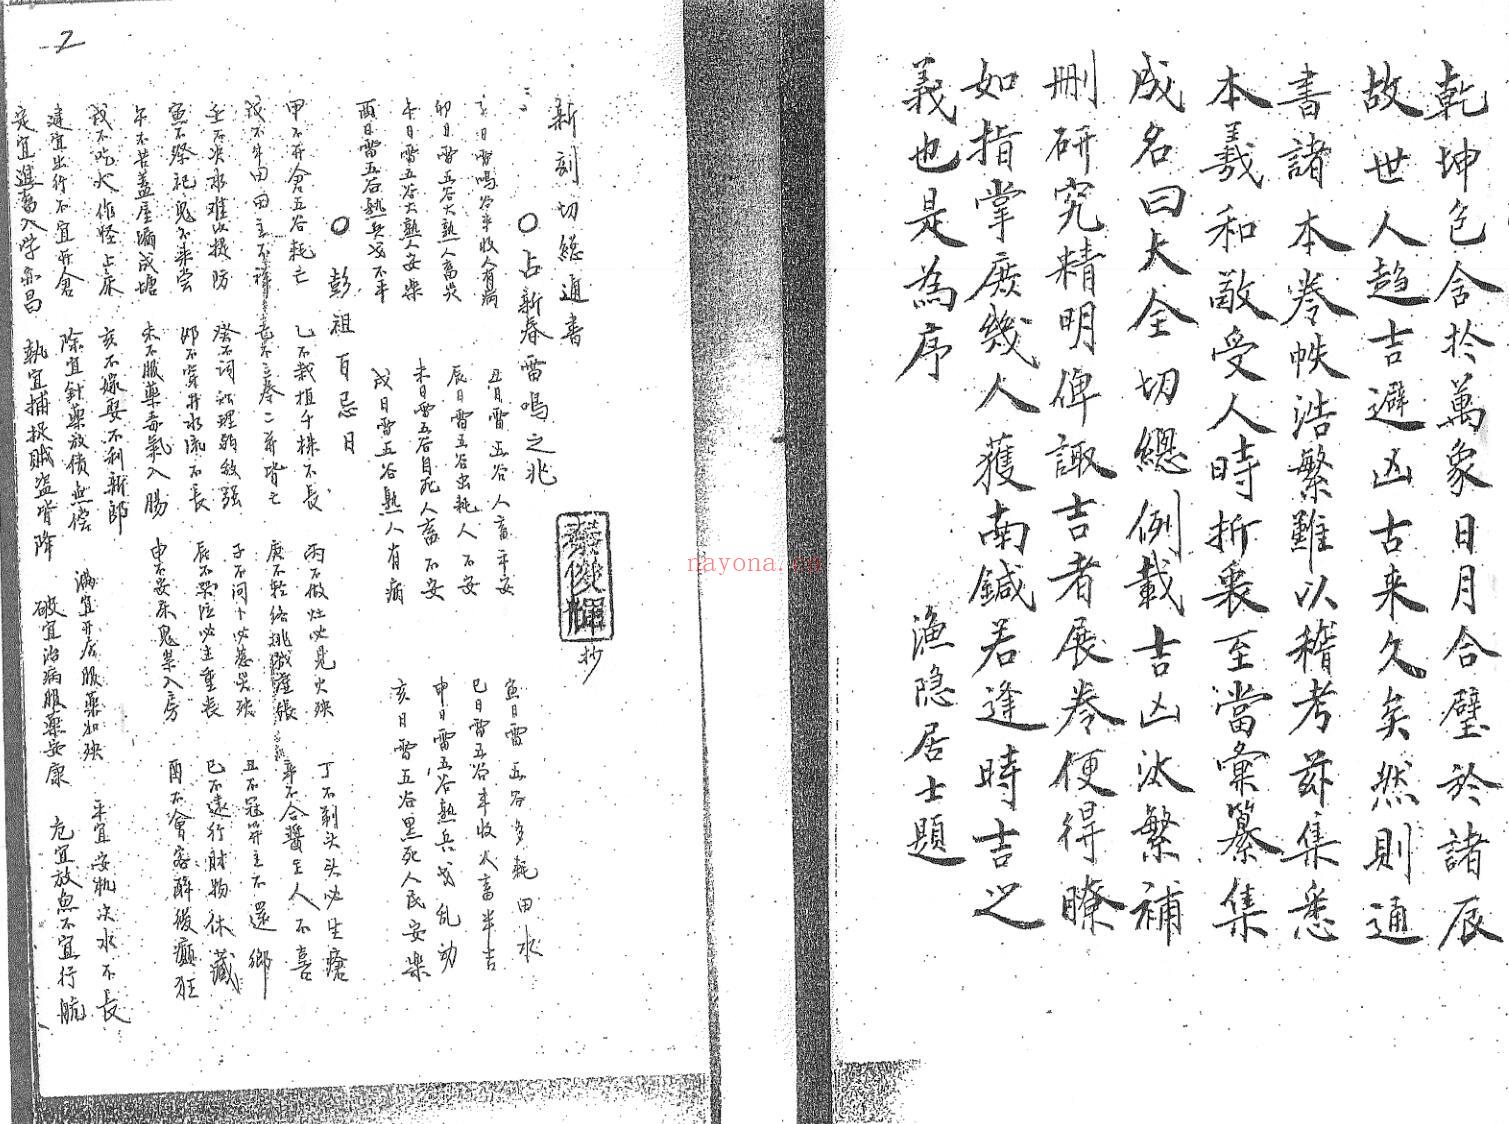 乾坤包含於萬象日月合璧於諸辰
故世人趋吉避凶古来久矣然則通
書諸本卷帙浩繁難以稽考茲集悉
本羲和敵受人時折衷至當彙纂集
成名曰大全切總例載吉凶汰繁補
刪研究精明俾諏吉者展卷便得瞭
如指掌庶幾人獲南鍼若逢時吉之
義也是為序
漁隐居士題
2
新刻切總通書
抄
〇占新春雷鳴之兆
日雷鳴谷半收人有病
丑日雷五谷人畜平安
寅日雷五谷多耗田水
卯日雷五谷大熟人畜災
辰日雷五谷出耗人不安
巳日雷五谷半收人畜半吉
午日雷五谷大熟人安樂
未日雷五谷自死人畜不安
申日雷五谷熟兵戈乱动
酉日雷五谷熟兵戈不平
戌日雷五谷熟人有病
亥日雷五谷黑死人民安樂
〇彭祖百忌日
甲不开倉五谷耗亡
乙不栽植千株不長
丙不做灶必見火殃
丁不剃头头必生瘡
戊不牛田田主不祥
二 皆亡
庚不经络
辛不合醬主人不喜
壬不决水难以提防
癸不词讼理弱敌强
子不问卜必惹災殃
丑不冠笄主不還鄉
寅不祭祀鬼不来尝
卯不穿井水流不長
辰不哭泣必主重丧
巳不遠行財物休藏
午不苫盖屋漏成塘
未不服藥毒氣入腸
申不安床鬼祟入房
酉不會客醉後癲狂
戌不吃犬作怪上床
亥不嫁娶不利新郎
建宜出行不宜开倉
除宜針藥放债無偿
滿宜开店服藥加殃
平宜安机决水不長
定宜進畜入学亦昌
執宜捕捉賊盜皆降
破宜治病服藥安康
危宜放魚不宜行航
nayona.cn